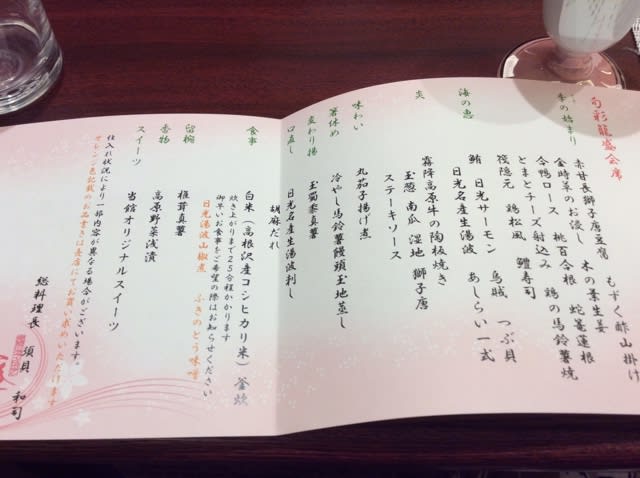 旬彩籠盛会席
季の始まり
赤甘長獅子唐豆腐 もずく酢山掛け
金時草のお浸し 木の葉生姜
合鴨ロース 桃百合根 蛇篭蓮根
とまとチーズ射込み 鶏の馬鈴薯焼
筏隠元 鶏松風 鱧寿司
海の恵
鮪 日光サーモン 烏賊 つぶ貝
日光名産生湯波 あしらい一式
炎
霧降高原牛の陶板焼き
玉葱 南瓜 湿地 獅子唐
ステーキソース
味わい
丸茄子揚げ煮
箸休め
冷やし馬鈴薯饅頭玉地蒸し
変わり揚
玉蜀黍真薯
口直し
日光名産生湯波刺し
胡麻だれ
食事
白米(高根沢産コシヒカリ米) 釜炊
炊き上がりまで25分程かかります
御早いお食事をご希望の際はお知らせください
日光湯波山椒煮 ふきのとう味噌
留椀
椎茸真薯
香物
高原野菜浅漬
スイーツ
当館オリジナルスイーツ
仕入れ状況により一部内容が異なる場合がございます。
オレンジ色記載のお品書きは売店にてお買い求めいただけます
総料理長 須貝 和司